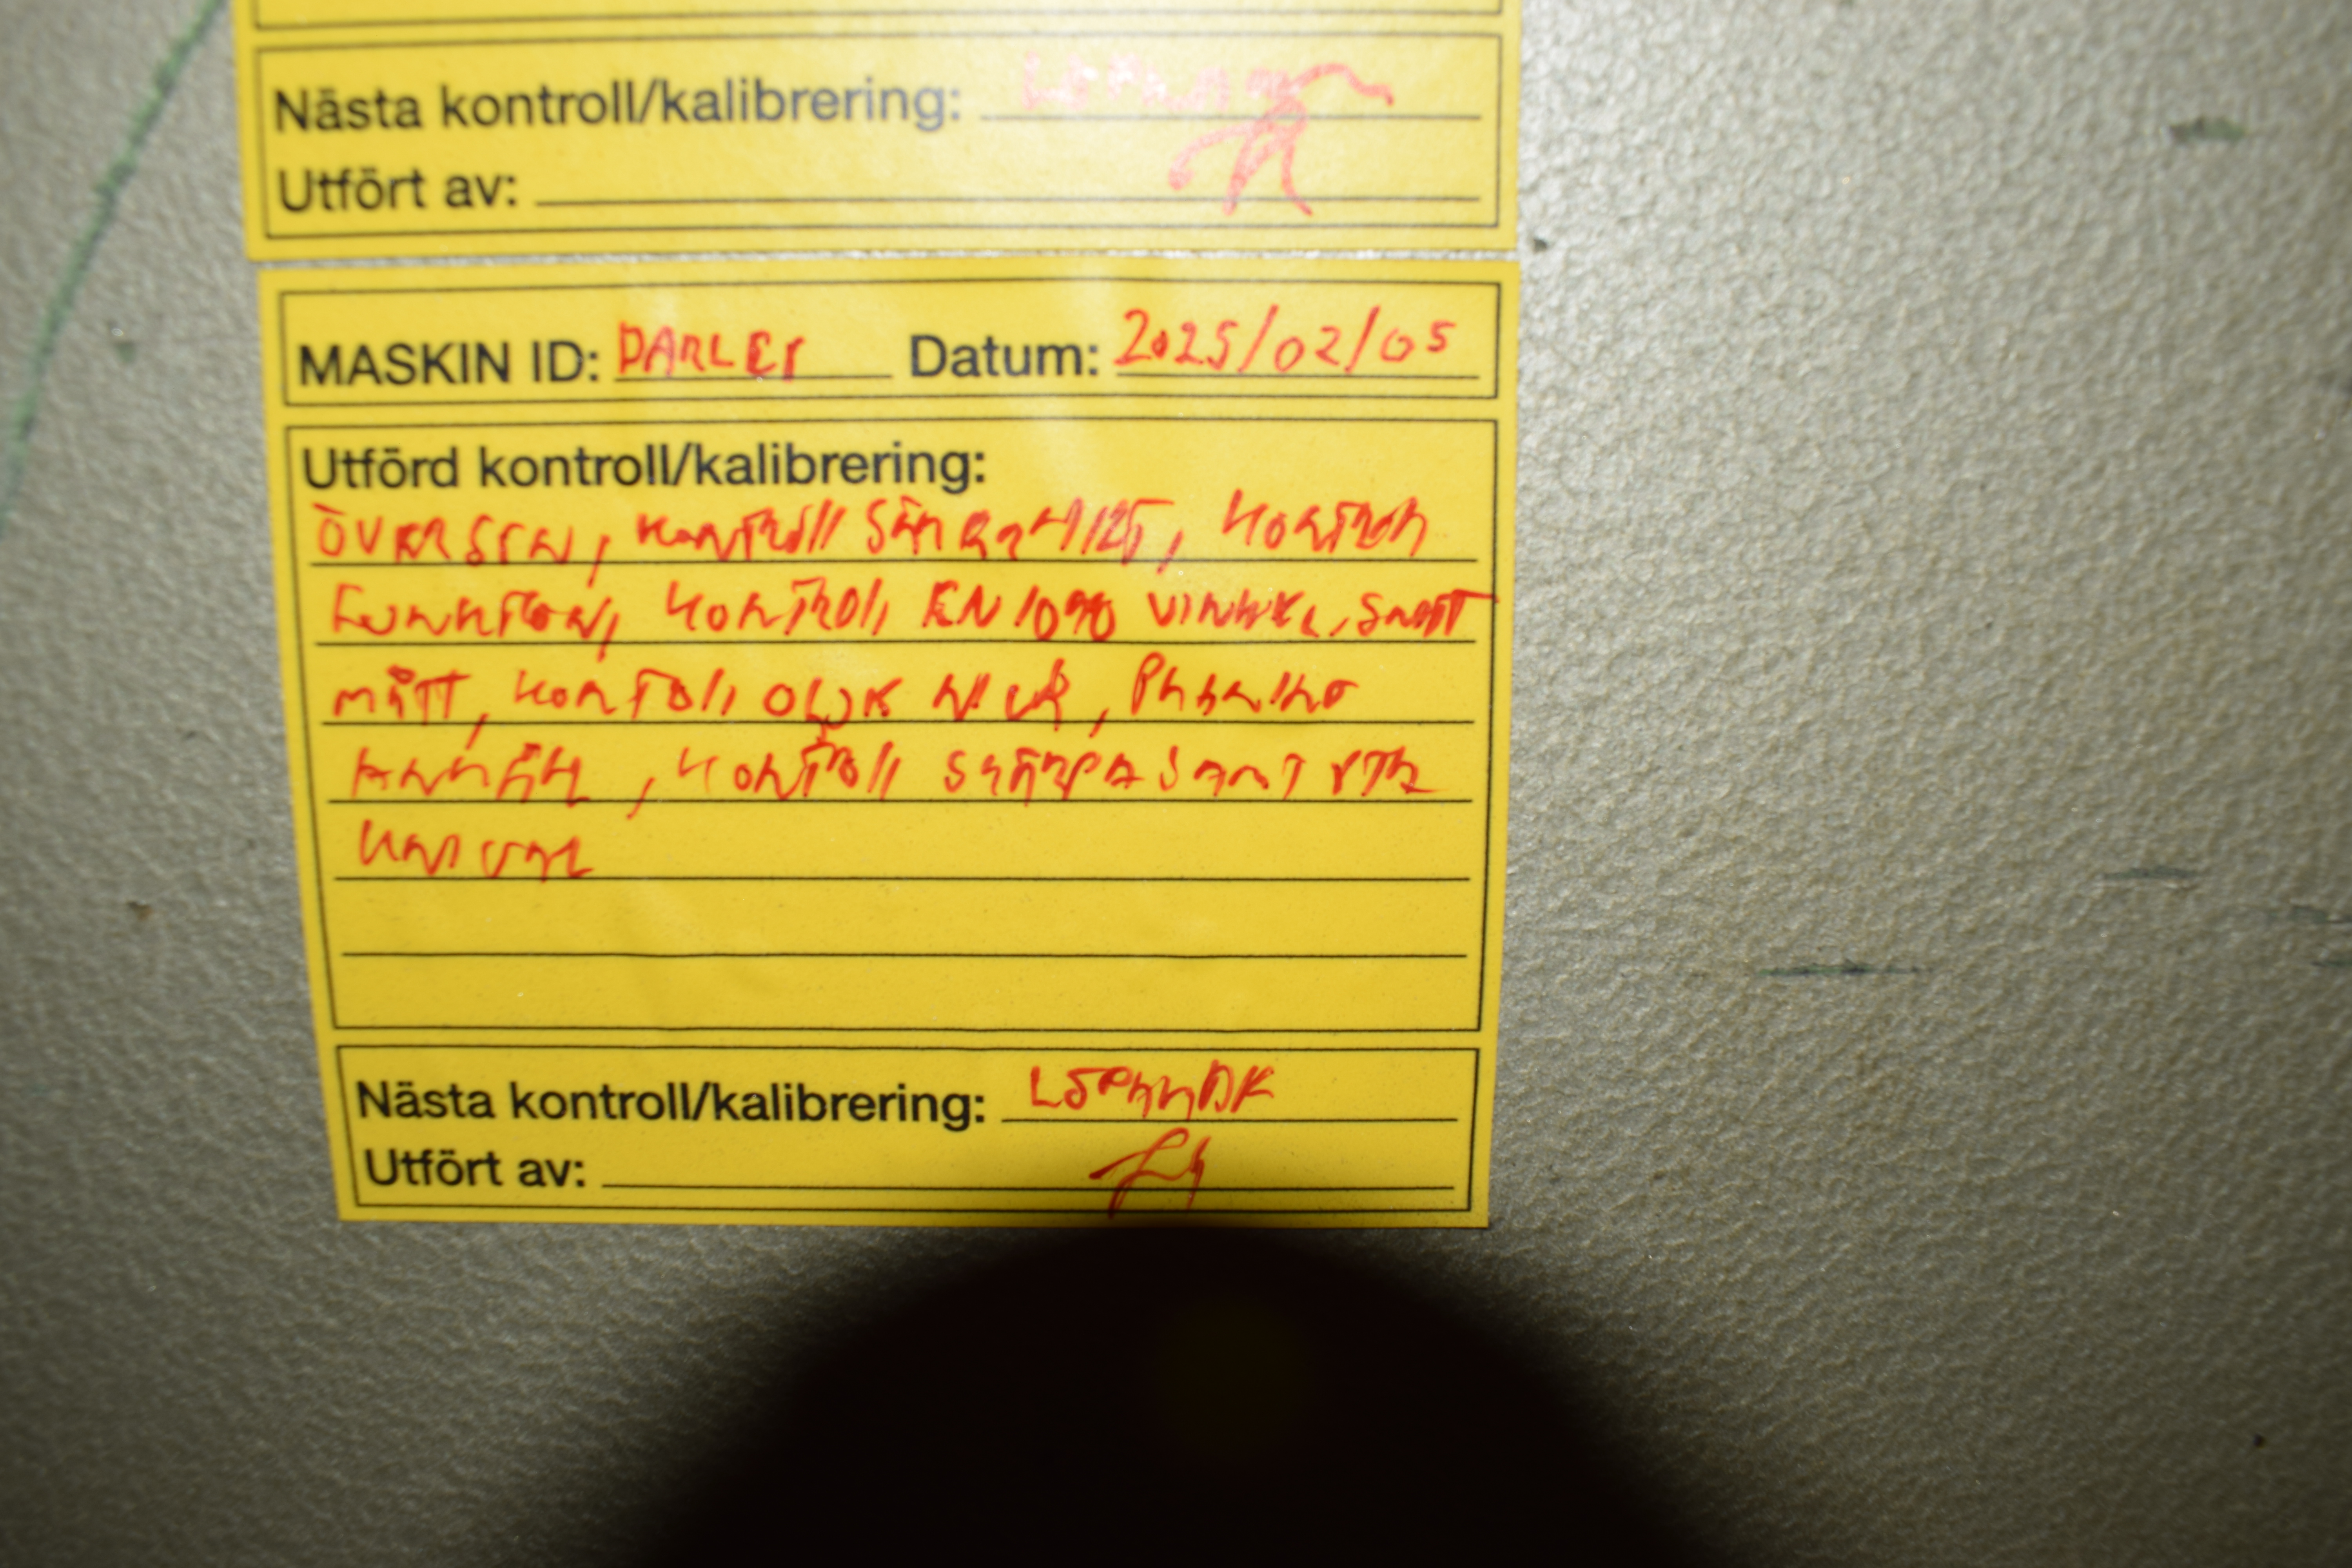 Nästa kontroll/kalibrering:
Utfört av:
MASKIN ID: DARLEY Datum: 2025/02/05
Utförd kontroll/kalibrering:
ÖVERSYN, KONTROLL SÄKERHET, KONTROLL
FUNKTION, KONTROLL EN 1090 VINKEL, SAMT
MÅTT, KONTROLL OLJE NIVÅ,
, KONTROLL SKÄRPA SAMT
Nästa kontroll/kalibrering: LÖPANDE
Utfört av: